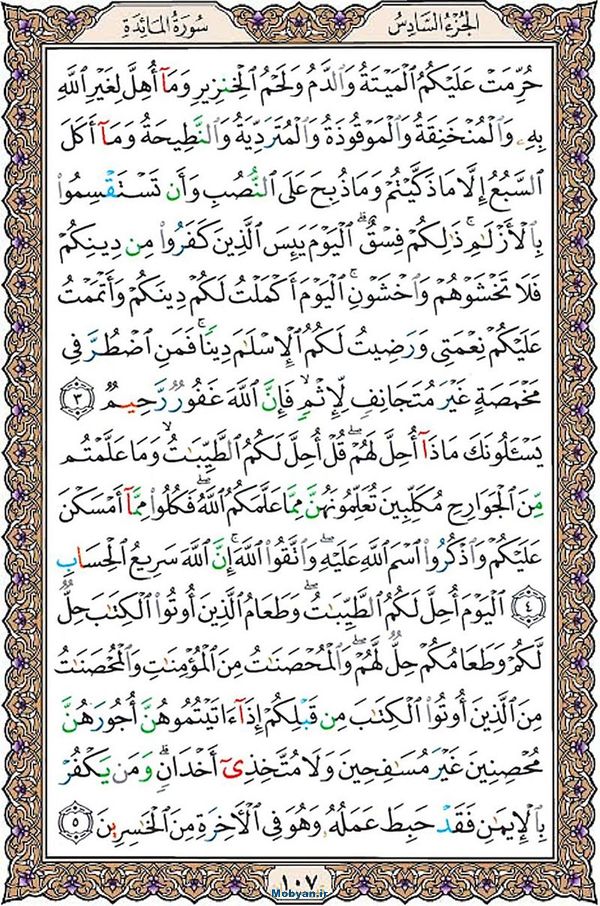 سُورَةُ المَائِدَةِ
الجُزْءُ السَّادِسُ
حُرِّمَتْ عَلَيْكُمُ ٱلْمَيْتَةُ وَٱلدَّمُ وَلَحْمُ ٱلْخِنزِيرِ وَمَآ أُهِلَّ لِغَيْرِ ٱللَّهِ
بِهِۦ وَٱلْمُنْخَنِقَةُ وَٱلْمَوْقُوذَةُ وَٱلْمُتَرَدِّيَةُ وَٱلنَّطِيحَةُ وَمَآ أَكَلَ
ٱلسَّبُعُ إِلَّا مَا ذَكَّيْتُمْ وَمَا ذُبِحَ عَلَى ٱلنُّصُبِ وَأَن تَسْتَقْسِمُوا۟
بِٱلْأَزْلَٰمِ ۚ ذَٰلِكُمْ فِسْقٌ ۗ ٱلْيَوْمَ يَئِسَ ٱلَّذِينَ كَفَرُوا۟ مِن دِينِكُمْ
فَلَا تَخْشَوْهُمْ وَٱخْشَوْنِ ۚ ٱلْيَوْمَ أَكْمَلْتُ لَكُمْ دِينَكُمْ وَأَتْمَمْتُ
عَلَيْكُمْ نِعْمَتِى وَرَضِيتُ لَكُمُ ٱلْإِسْلَٰمَ دِينًا ۚ فَمَنِ ٱضْطُرَّ فِى
مَخْمَصَةٍ غَيْرَ مُتَجَانِفٍ لِّإِثْمٍ ۙ فَإِنَّ ٱللَّهَ غَفُورٌ رَّحِيمٌ ٣
يَسْـَٔلُونَكَ مَاذَآ أُحِلَّ لَهُمْ ۖ قُلْ أُحِلَّ لَكُمُ ٱلطَّيِّبَٰتُ ۙ وَمَا عَلَّمْتُم
مِّنَ ٱلْجَوَارِحِ مُكَلِّبِينَ تُعَلِّمُونَهُنَّ مِمَّا عَلَّمَكُمُ ٱللَّهُ ۖ فَكُلُوا۟ مِمَّآ أَمْسَكْنَ
عَلَيْكُمْ وَٱذْكُرُوا۟ ٱسْمَ ٱللَّهِ عَلَيْهِ ۖ وَٱتَّقُوا۟ ٱللَّهَ ۚ إِنَّ ٱللَّهَ سَرِيعُ ٱلْحِسَابِ
٤ ٱلْيَوْمَ أُحِلَّ لَكُمُ ٱلطَّيِّبَٰتُ ۖ وَطَعَامُ ٱلَّذِينَ أُوتُوا۟ ٱلْكِتَٰبَ حِلٌّ
لَّكُمْ وَطَعَامُكُمْ حِلٌّ لَّهُمْ ۖ وَٱلْمُحْصَنَٰتُ مِنَ ٱلْمُؤْمِنَٰتِ وَٱلْمُحْصَنَٰتُ
مِنَ ٱلَّذِينَ أُوتُوا۟ ٱلْكِتَٰبَ مِن قَبْلِكُمْ إِذَآ ءَاتَيْتُمُوهُنَّ أُجُورَهُنَّ
مُحْصِنِينَ غَيْرَ مُسَٰفِحِينَ وَلَا مُتَّخِذِىٓ أَخْدَانٍ ۗ وَمَن يَكْفُرْ
بِٱلْإِيمَٰنِ فَقَدْ حَبِطَ عَمَلُهُۥ وَهُوَ فِى ٱلْـَٔاخِرَةِ مِنَ ٱلْخَٰسِرِينَ ٥
١٠٧
Mobyan.ir